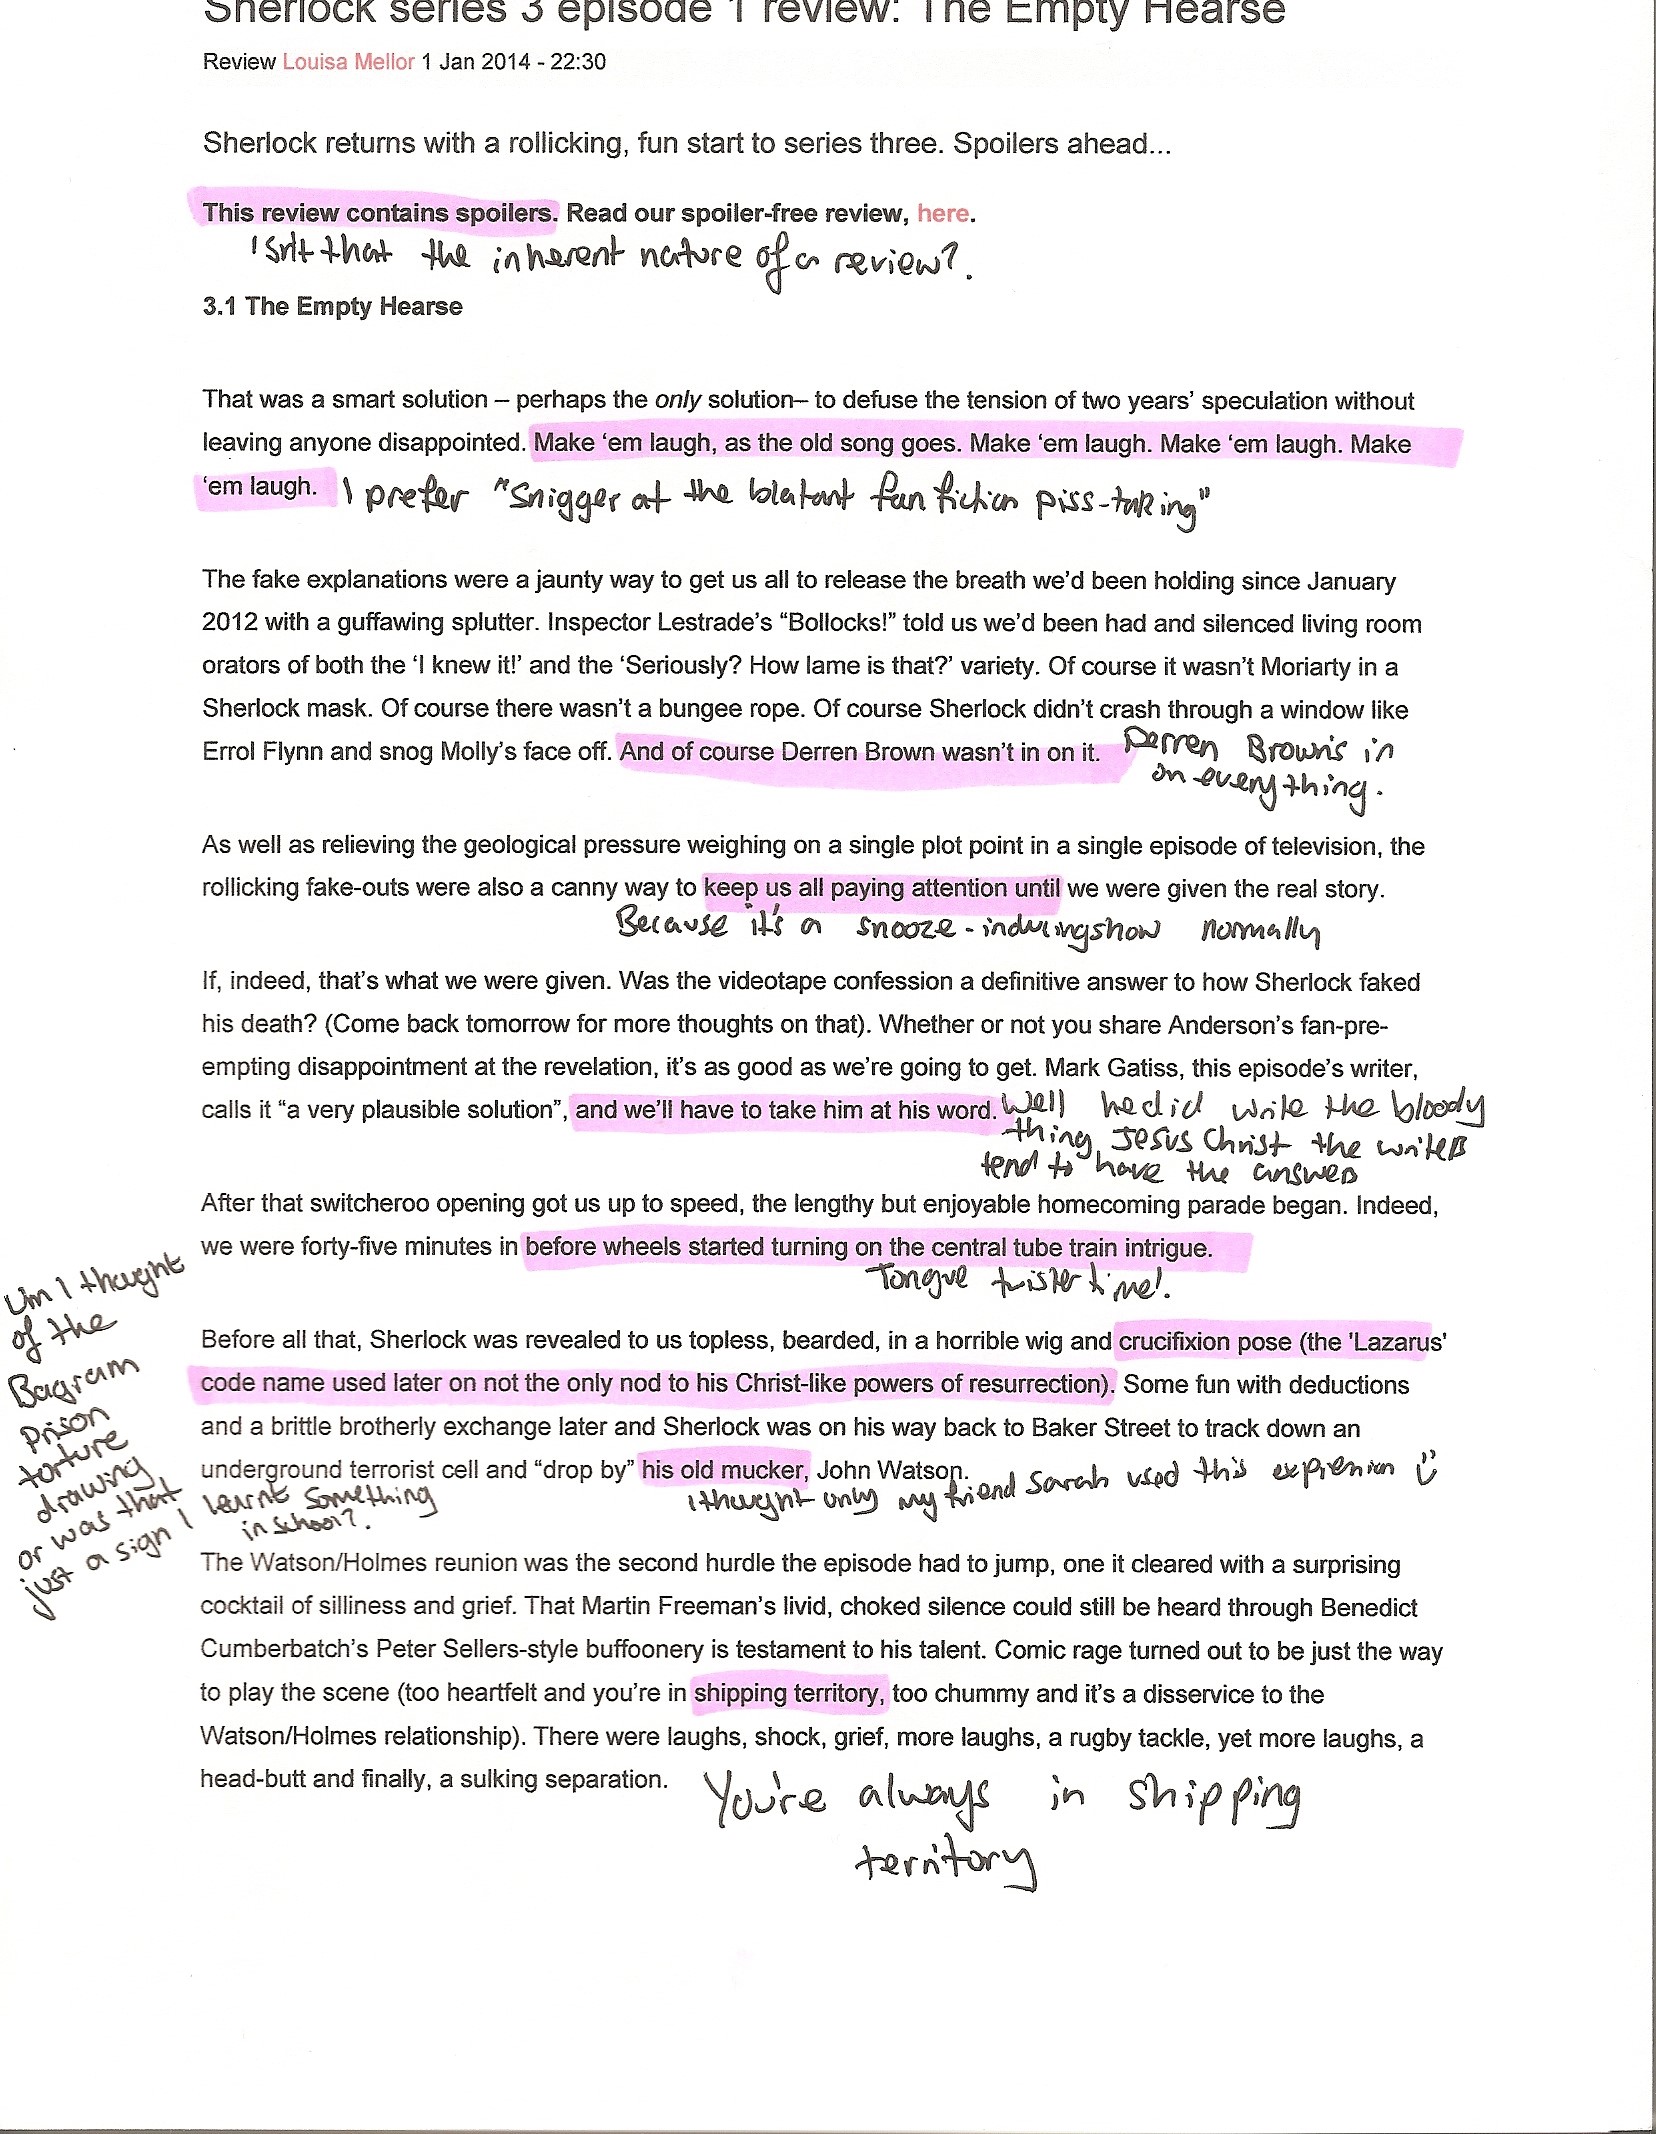 Sherlock series 3 episode 1 review: The Empty Hearse
Review Louisa Mellor 1 Jan 2014 - 22:30
Sherlock returns with a rollicking, fun start to series three. Spoilers ahead...
This review contains spoilers. Read our spoiler-free review, here.
Isn't that the inherent nature of a review?.
3.1 The Empty Hearse
That was a smart solution – perhaps the only solution– to defuse the tension of two years’ speculation without
leaving anyone disappointed. Make ‘em laugh, as the old song goes. Make ‘em laugh. Make ‘em laugh. Make
‘em laugh. I prefer "Snigger at the blatant fan fiction piss-taking"
The fake explanations were a jaunty way to get us all to release the breath we’d been holding since January
2012 with a guffawing splutter. Inspector Lestrade’s “Bollocks!” told us we’d been had and silenced living room
orators of both the ‘I knew it!’ and the ‘Seriously? How lame is that?’ variety. Of course it wasn’t Moriarty in a
Sherlock mask. Of course there wasn’t a bungee rope. Of course Sherlock didn’t crash through a window like
Errol Flynn and snog Molly’s face off. And of course Derren Brown wasn’t in on it. Derren Brown's in
on everything.
As well as relieving the geological pressure weighing on a single plot point in a single episode of television, the
rollicking fake-outs were also a canny way to keep us all paying attention until we were given the real story.
Because it's a snooze-inducing show normally
If, indeed, that’s what we were given. Was the videotape confession a definitive answer to how Sherlock faked
his death? (Come back tomorrow for more thoughts on that). Whether or not you share Anderson’s fan-pre-
empting disappointment at the revelation, it’s as good as we’re going to get. Mark Gatiss, this episode’s writer,
calls it “a very plausible solution”, and we’ll have to take him at his word. Well he did write the bloody
thing, Jesus Christ the writers
tend to have the answers
After that switcheroo opening got us up to speed, the lengthy but enjoyable homecoming parade began. Indeed,
we were forty-five minutes in before wheels started turning on the central tube train intrigue.
Tongue twister time!.
Um I thought
of the
Bagram
prison
torture
drawing
or was that
just a sign I learnt something
in school?.
Before all that, Sherlock was revealed to us topless, bearded, in a horrible wig and crucifixion pose (the 'Lazarus'
code name used later on not the only nod to his Christ-like powers of resurrection). Some fun with deductions
and a brittle brotherly exchange later and Sherlock was on his way back to Baker Street to track down an
underground terrorist cell and “drop by” his old mucker, John Watson.
I thought only my friend Sarah used this expression
The Watson/Holmes reunion was the second hurdle the episode had to jump, one it cleared with a surprising
cocktail of silliness and grief. That Martin Freeman’s livid, choked silence could still be heard through Benedict
Cumberbatch’s Peter Sellers-style buffoonery is testament to his talent. Comic rage turned out to be just the way
to play the scene (too heartfelt and you’re in shipping territory, too chummy and it’s a disservice to the
Watson/Holmes relationship). There were laughs, shock, grief, more laughs, a rugby tackle, yet more laughs, a
head-butt and finally, a sulking separation.
You're always in shipping
territory